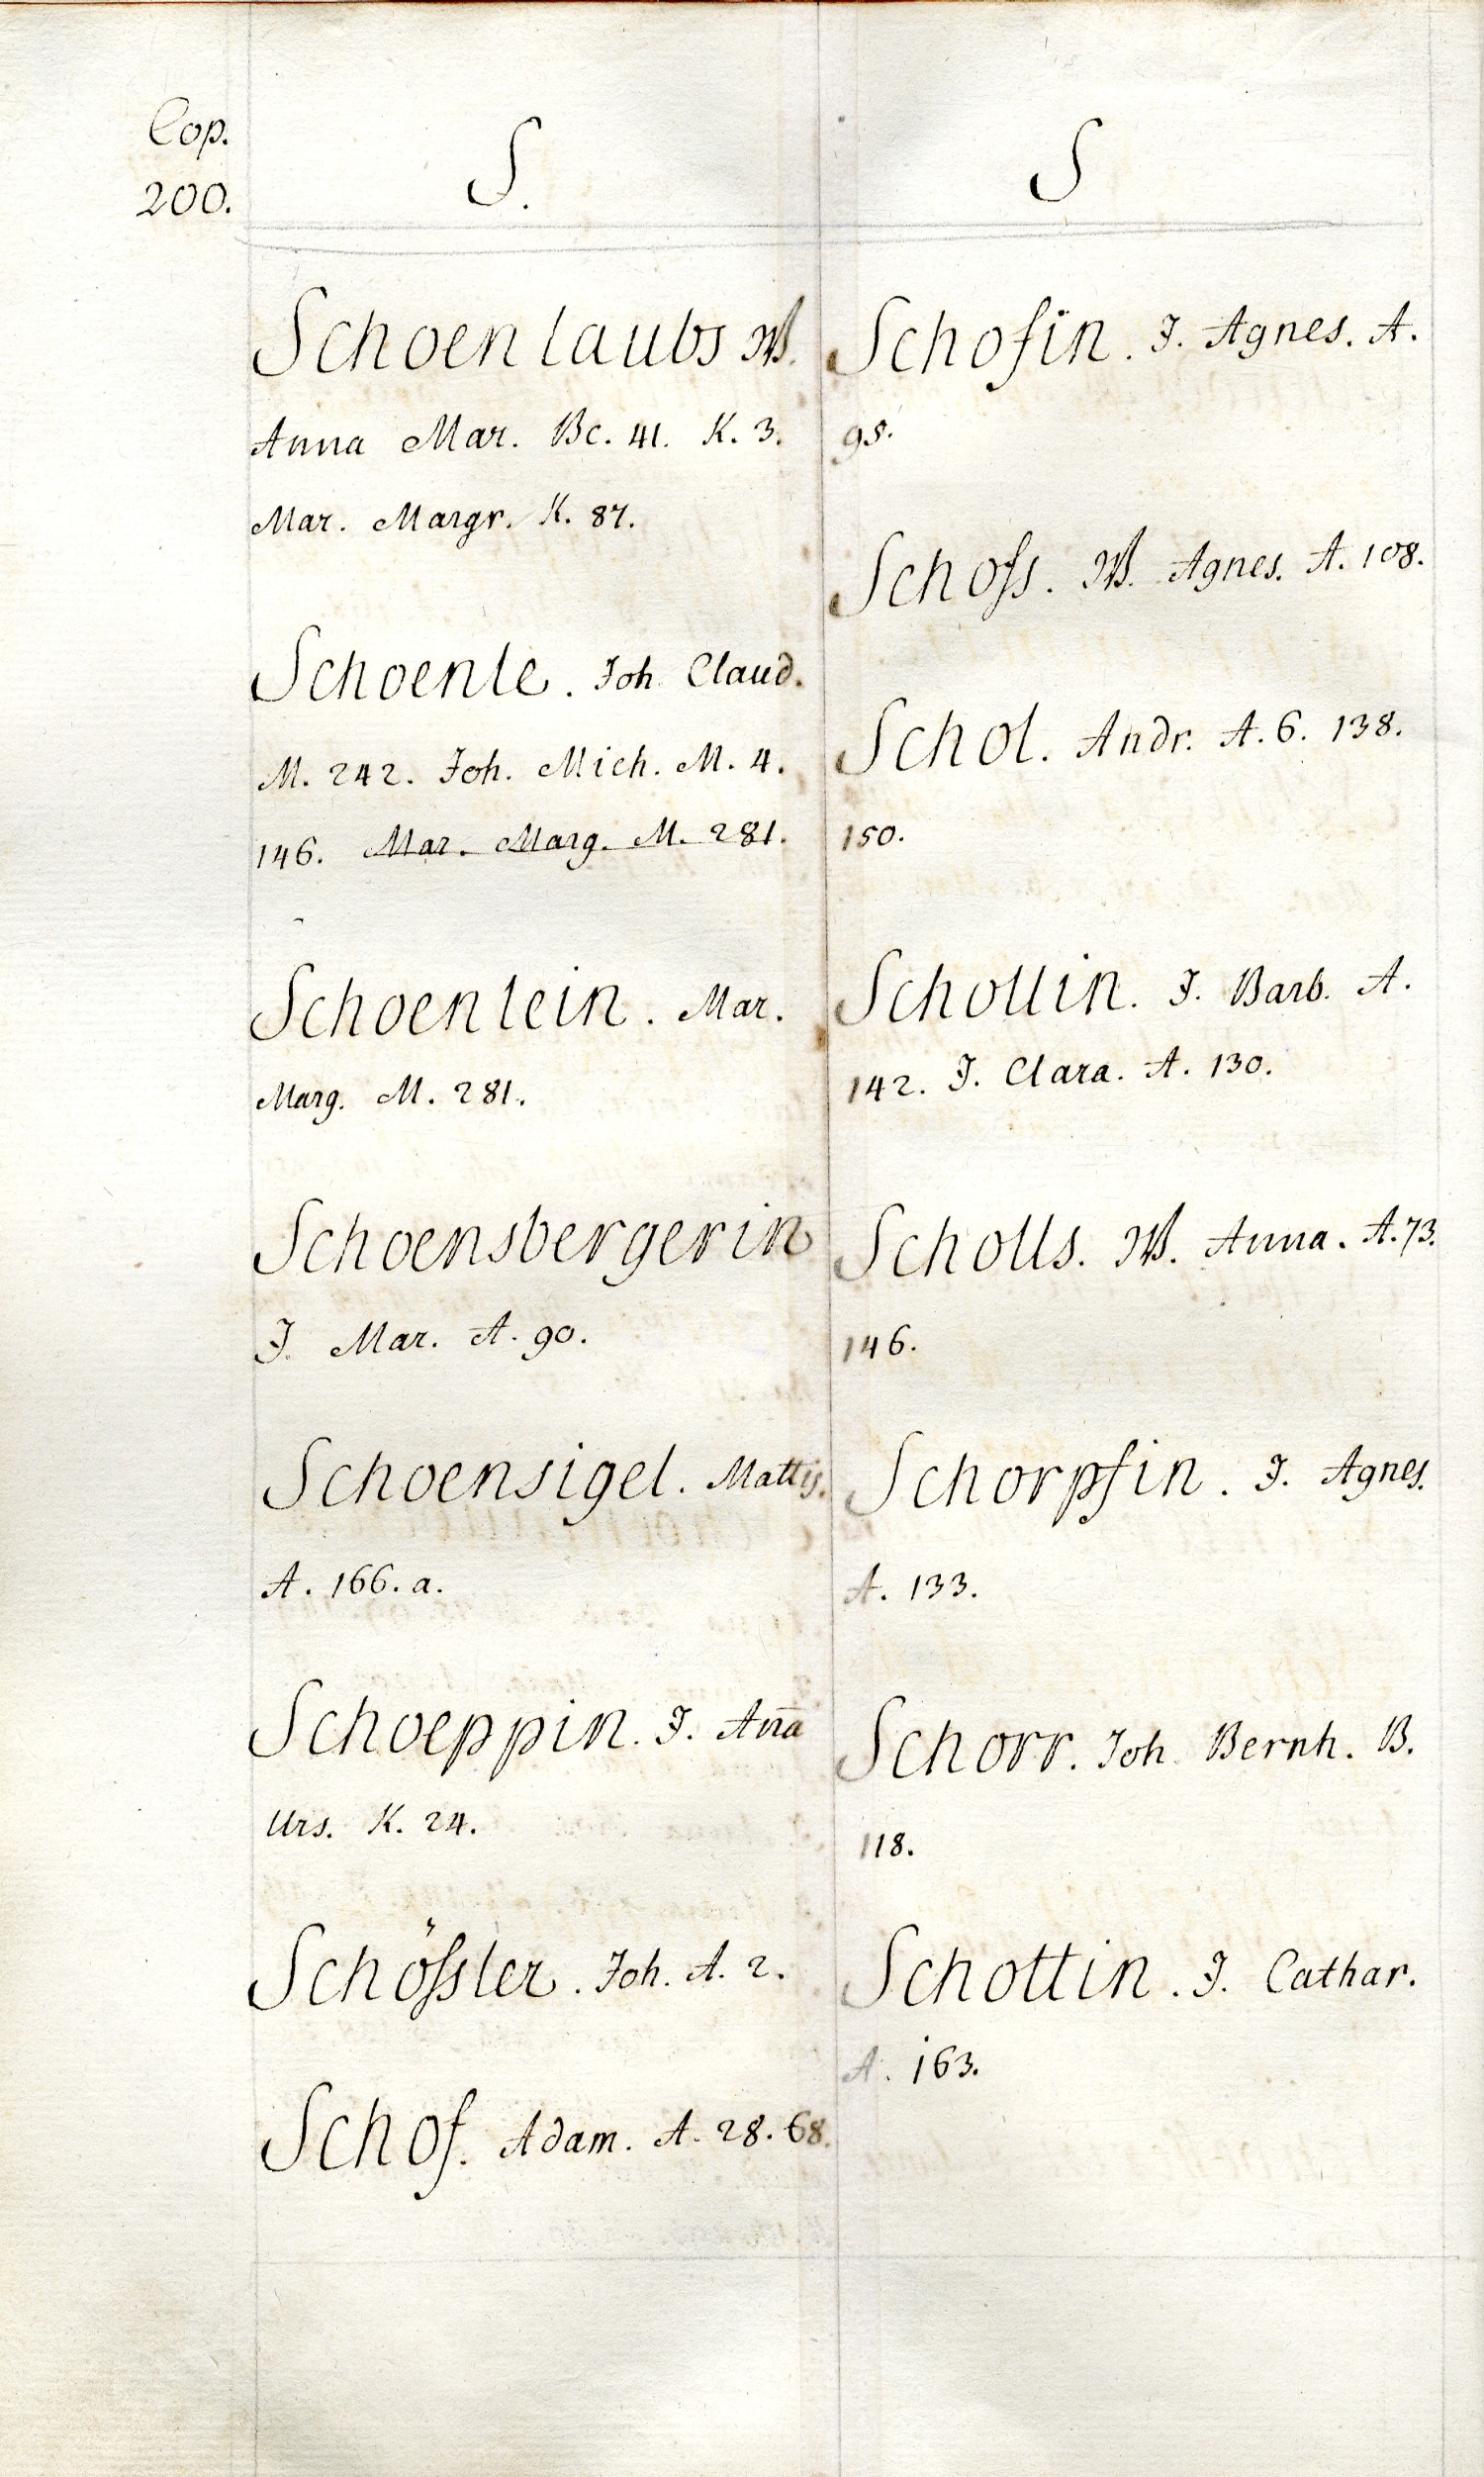 Cop.
200.
S.
Schoenlaubs W.
Anna Mar. Bc. 41. K. 3.
Mar. Margr. K. 87.
Schoenle. Joh. Claud.
M. 242. Joh. Mich. M. 4.
146. Mar. Marg. M. 281.
Schoenlein. Mar.
Marg. M. 281.
Schoensbergerin
J. Mar. A. 90.
Schoensigel. Mattis.
A. 166. a.
Schoeppin. J. Aña
Urs. K. 24.
Schösſler. Joh. A. 2.
Schof. Adam. A. 28. 68.
S
Schofin. J. Agnes. A.
95.
Schofs. W. Agnes. A. 108.
Schol. Andr. A. 6. 138.
150.
Schollin. J. Barb. A.
142. J. Clara. A. 130.
Scholls. W. Anna. A. 73.
146.
Schorpfin. J. Agnes.
A. 133.
Schorr. Joh. Bernh. B.
118.
Schottin. J. Cathar.
A. 163.